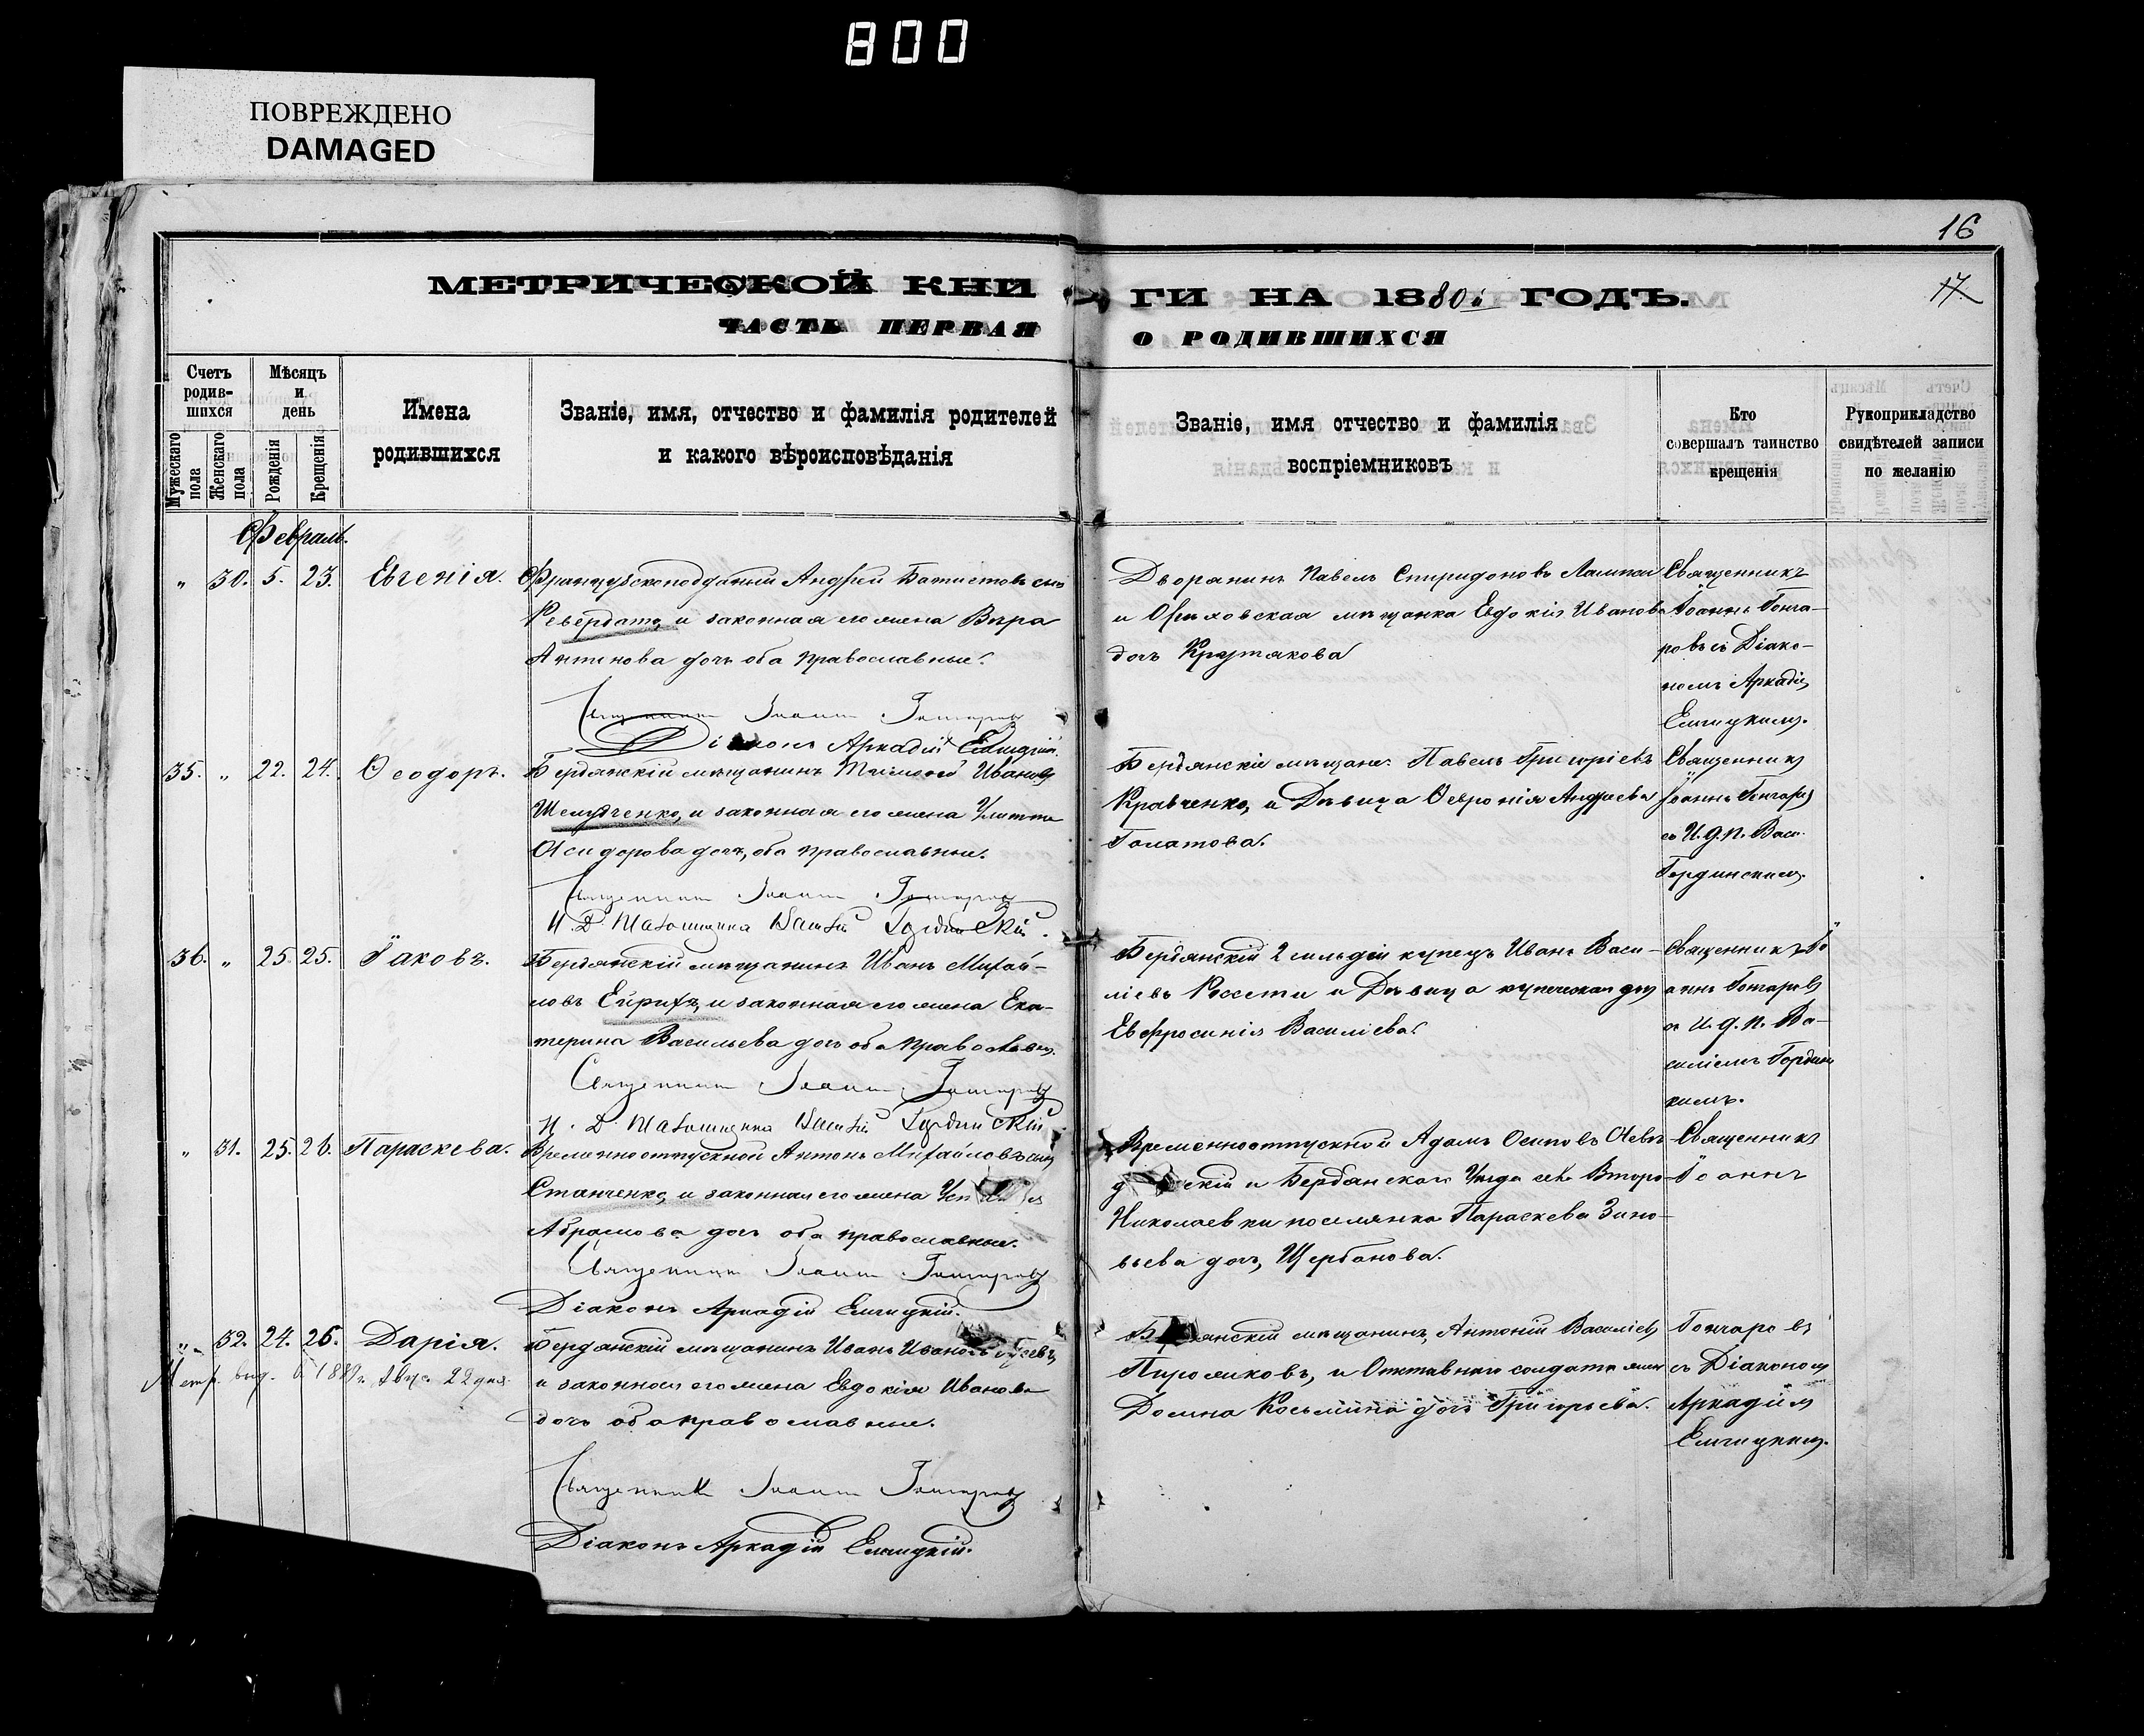 800
ПОВРЕЖДЕНО
DAMAGED
16
17
МЕТРИЧЕСКОЙ КНИ ГИ НА 1880й ГОДЪ.
ЧАСТЬ ПЕРВАЯ О РОДИВШИХСЯ
Счетъ родив-шихся
Мужескаго пола
Женскаго пола
Мѣсяцъ и день
Рожденія
Крещенія
Имена родившихся
Званіе, имя, отчество и фамилія родителей
и какого вѣроисповѣданія
Званіе, имя отчество и фамилія
воспріемниковъ
Кто
совершалъ таинство
крещенія
Рукоприкладство
свидѣтелей записи
по желанію
Февраль.
„ 30. 5. 23. Евгенія.
Французскоподданый Андрей Батистовъ сынъ
Ревердато, и законная его жена Вѣра
Антинова дочь оба православные.
Священникъ Іоаннъ Гончаровъ
Діаконъ Аркадій
Дворянинъ Павелъ Спиридоновъ
и Орѣховская мѣщанка Евдокія Иванова
дочь Крутякова
Священникъ
Іоаннъ Гонча-
ровъ съ Діако-
номъ Аркадіе
35. „ 22. 24. Ѳеодоръ.
Бердянскій мѣщанинъ Тимофей Ивановъ
Шелудченко, и законная его жена Улитта
Исидорова дочь, оба православные.
Священникъ Іоаннъ Гончаровъ
И. Д. Псаломщика Василій Гординскій.
Бердянскій мѣщане. Павелъ Григоріевъ
Кравченко, и Дѣвица Ѳевронія Андреева
Голатова.
Священникъ
Іоаннъ Гончаровъ
съ И. д. п. Вас.
Гординскимъ.
36. „ 25. 25. Іаковъ.
Бердянскій мѣщанинъ Иванъ Михай-
ловъ Ейрихъ, и законная его жена Ека-
терина Васильева дочь оба православн.
Священникъ Іоаннъ Гончаровъ
И. Д. Псаломщика Василій Гординскій
Бердянскій 2 гильдіи купецъ Иванъ Васи-
ліевъ Россети и Дѣвица купеческая дочь
Евфросинія Василіева.
Священникъ Іо
аннъ Гончаровъ
съ И. д. п. Ва-
силіемъ Гординс
кимъ.
„ 31. 25. 26. Параскева.
Временноотпускной Антонъ Михайловъ сынъ
Станченко, и законная его жена
Абрамова дочь оба православные.
Священникъ Іоаннъ Гончаровъ
Діаконъ Аркадій
Временноотпускной Адамъ Осиповъ
и Бердянскаго Уѣзда села Второ-
Николаевки поселянка Параскева Зино-
вьева дочь, Щербанова.
Священникъ
Іоаннъ
„ 32. 24. 26. Дарія.
Метр. выд. в 188 г. Авг. 22 дня.
Бердянскій мѣщанинъ Иванъ Ивановъ Гусевъ,
и законная его жена Евдокія Иванова
дочь оба православные.
Священникъ Іоаннъ Гончаровъ
Діаконъ Аркадій
мѣщанинъ, Антоній Василіевъ
Пирожковъ, и Отставнаго солдата жена
Домна Косьмина дочь Григорьева.
Гончаровъ
съ Діакономъ
Аркадіемъ